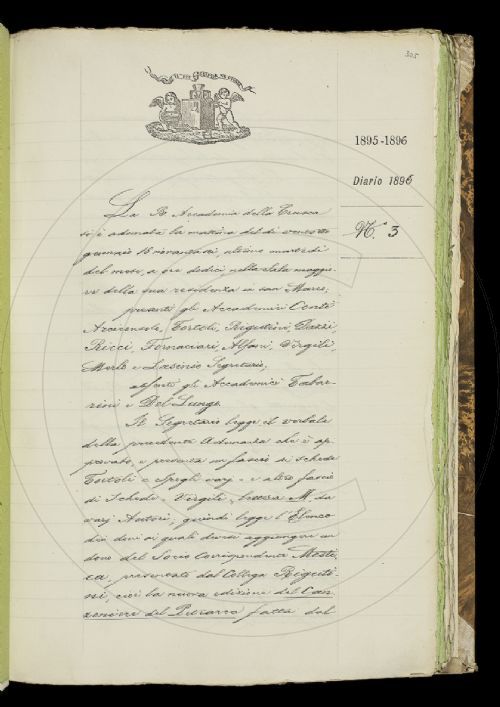 305
1895-1896
Diario 1896
N.° 3
La R. Accademia della Crusca
si è adunata la mattina del dì
gennaio
del mese, a ore dodici nella sala maggio-
re della sua residenza in san Marco;
presenti gli Accademici Conti
Arciconsolo, Tortoli, Rigutini, Dazzi,
Ricci, Fornaciari, Alfani, Virgili,
Merlo e Lasinio Segretario,
assenti gli Accademici Tabar-
rini e Del Lungo.
Il Segretario legge il verbale
della precedente Adunanza che è ap-
provato, e presenta un fascio di schede
Tortoli e Spogli varj, e altro fascio
di Schede Virgili, lettera M, da
varj Autori; quindi legge l'Elenco
dei doni ai quali devesi aggiungere un
dono del Socio Corrispondente Mesti-
ca, presentato dal Collega Riguti-
ni, cioè la nuova edizione del Can-
zoniere del Petrarca fatta dal